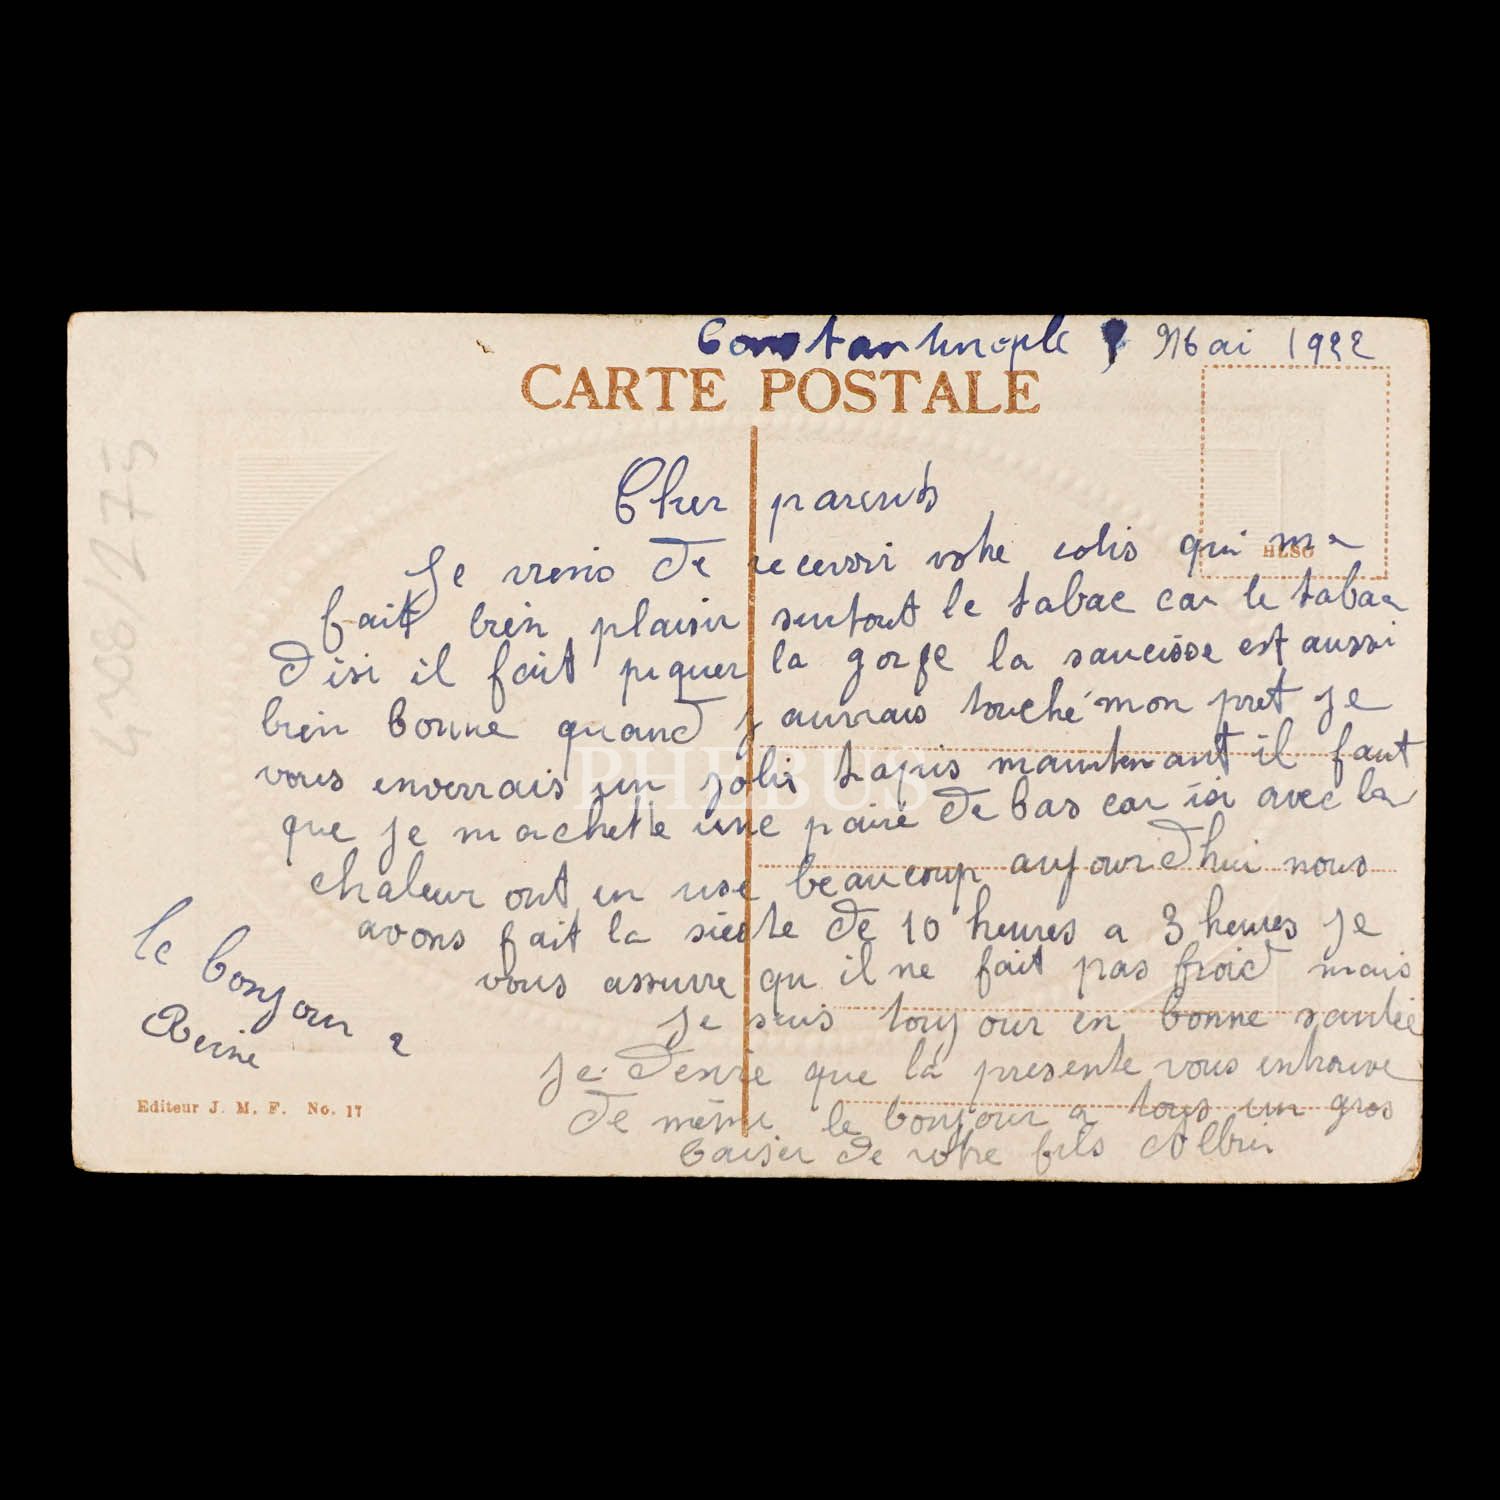 Constantinople 9 Mai 1922
CARTE POSTALE
Cher parents
Je viens de recevoir votre colis qui ma
fait bien plaisir surtout le tabac car le tabac
d'isi il fait piquer la gorge la saucisse est aussi
bien bonne quand j aurrais touché mon pret je
vous enverrais un jolis tapis maintenant il faut
que je m achette une paire de bas car isi avec la
chaleur ont en use beaucoup aujourd'hui nous
avons fait la sieste de 10 heures a 3 heures je
vous assurre qu il ne fait pas froid mais
je suis toujour en bonne santée
je desire que la presente vous entrouve
de même le bonjour a tous un gros
baiser de votre fils Albin
le bonjour a
Reine
Editeur J. M. F. No. 17
4300/275
PHEBUS